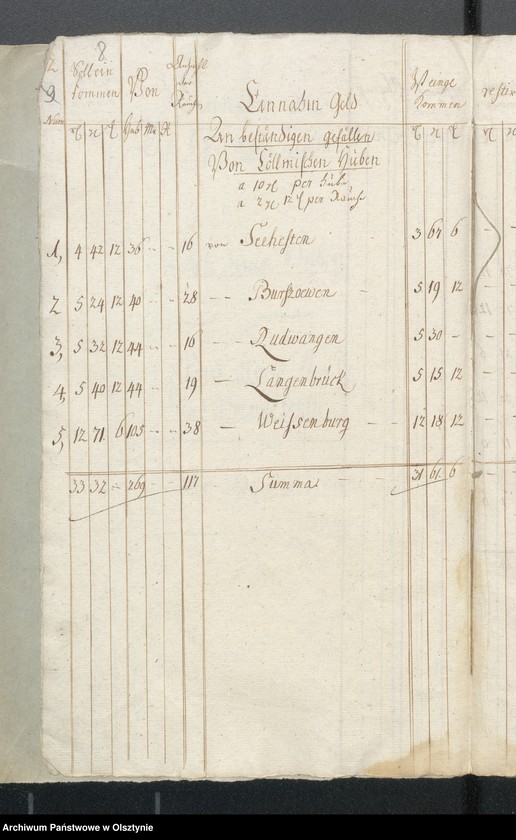 8
9
Soll ein
kommen
Von
Anzahl
der
Rauche
Einnahm Geld
An beständigen gefällen
Von Cöllmischen Huben
a 10 per Hube
a 2 12 per Rauch
Ist einge
kommen
restir
Num
Hub Mo R
1, 4 42 12 36 - - 16 von Seehesten 3 67 6 -
2 5 24 12 40 - - 28 - - Burszoewen - 5 19 12 -
3, 5 32 12 44 - - 16 - Rudwangen 5 30 - -
4, 5 40 12 44 - - 19 - Langenbrück 5 15 12 -
5, 12 71 6 105 - - 38 - Weissenburg - - 12 18 12 -
33 32 - 269 - - 117 Summa - - 31 61 6 -
Archiwum Państwowe w Olsztynie